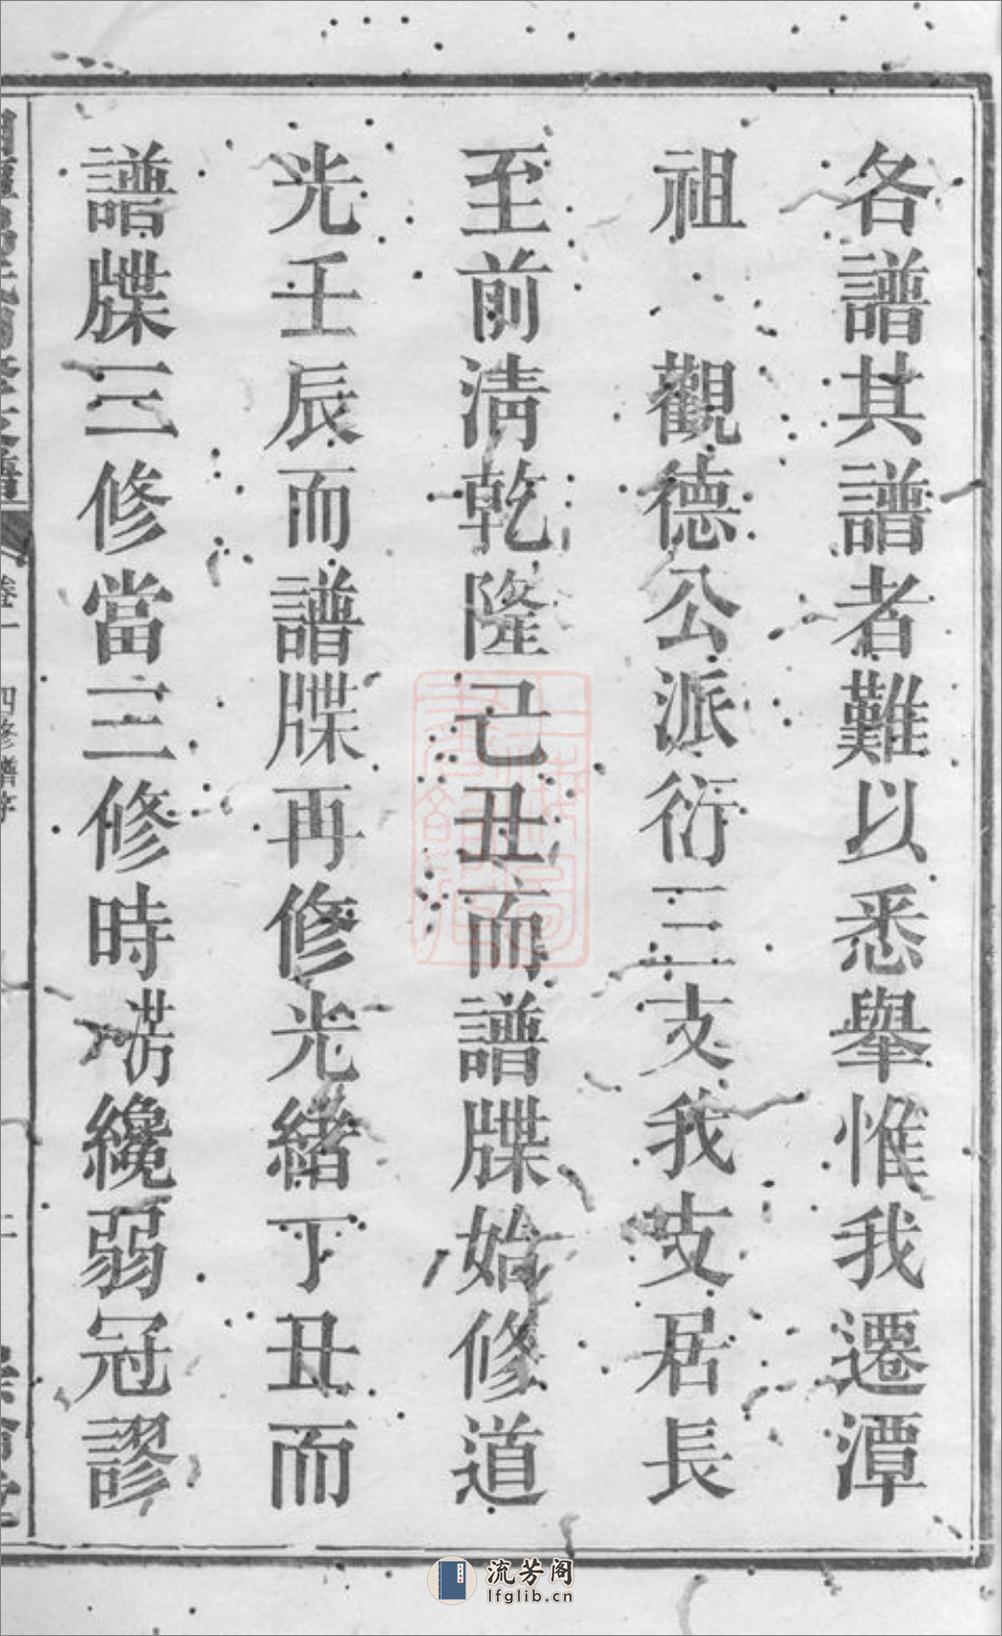 各譜其譜者難以悉舉惟我遷潭
祖　觀德公派衍三支我支居長
至前淸乾隆己丑而譜牒始修道
光壬辰而譜牒再修光緖丁丑而
譜牒三修當三修時纔弱冠謬
卷一
四修譜序
流芳阁
lfglib.cn